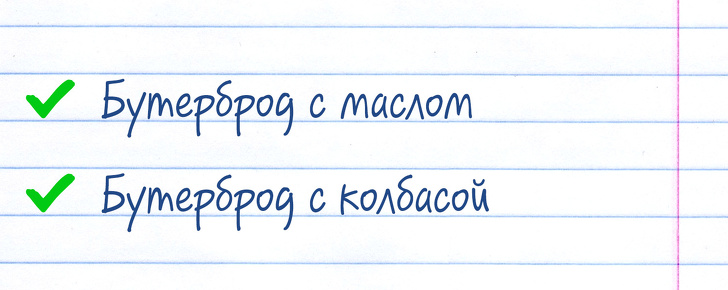 Бутерброд с маслом
Бутерброд с колбасой